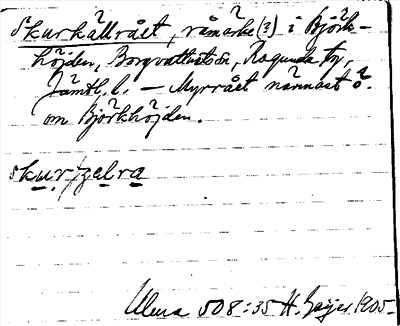 Skurkällrået, råmärke(?) i Björk-
höjden, Borgvattnets sn, Ragunda tg,
Jämtl. l. — Myrrået närmast ö.
om Björkhöjden.
Ulma 508:35 H. Geijer 1905.